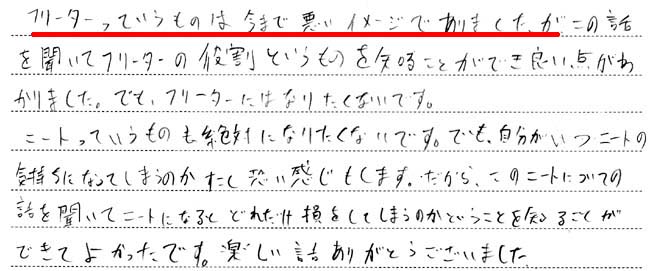 フリーターっていうものは今まで悪いイメージでありましたが この話
を聞いてフリーターの役割というものを知ることができ良い点がわ
かりました。でも、フリーターにはなりたくないです。
ニートっていうものも絶対になりたくないです。でも、自分がいつニートの
気持ちになってしまうのかすこし恐い感じもします。だから、このニートについての
話を聞いてニートになるとどれだけ損をしてしまうのかということを知ることが
できてよかったです。楽しい話ありがとうございました